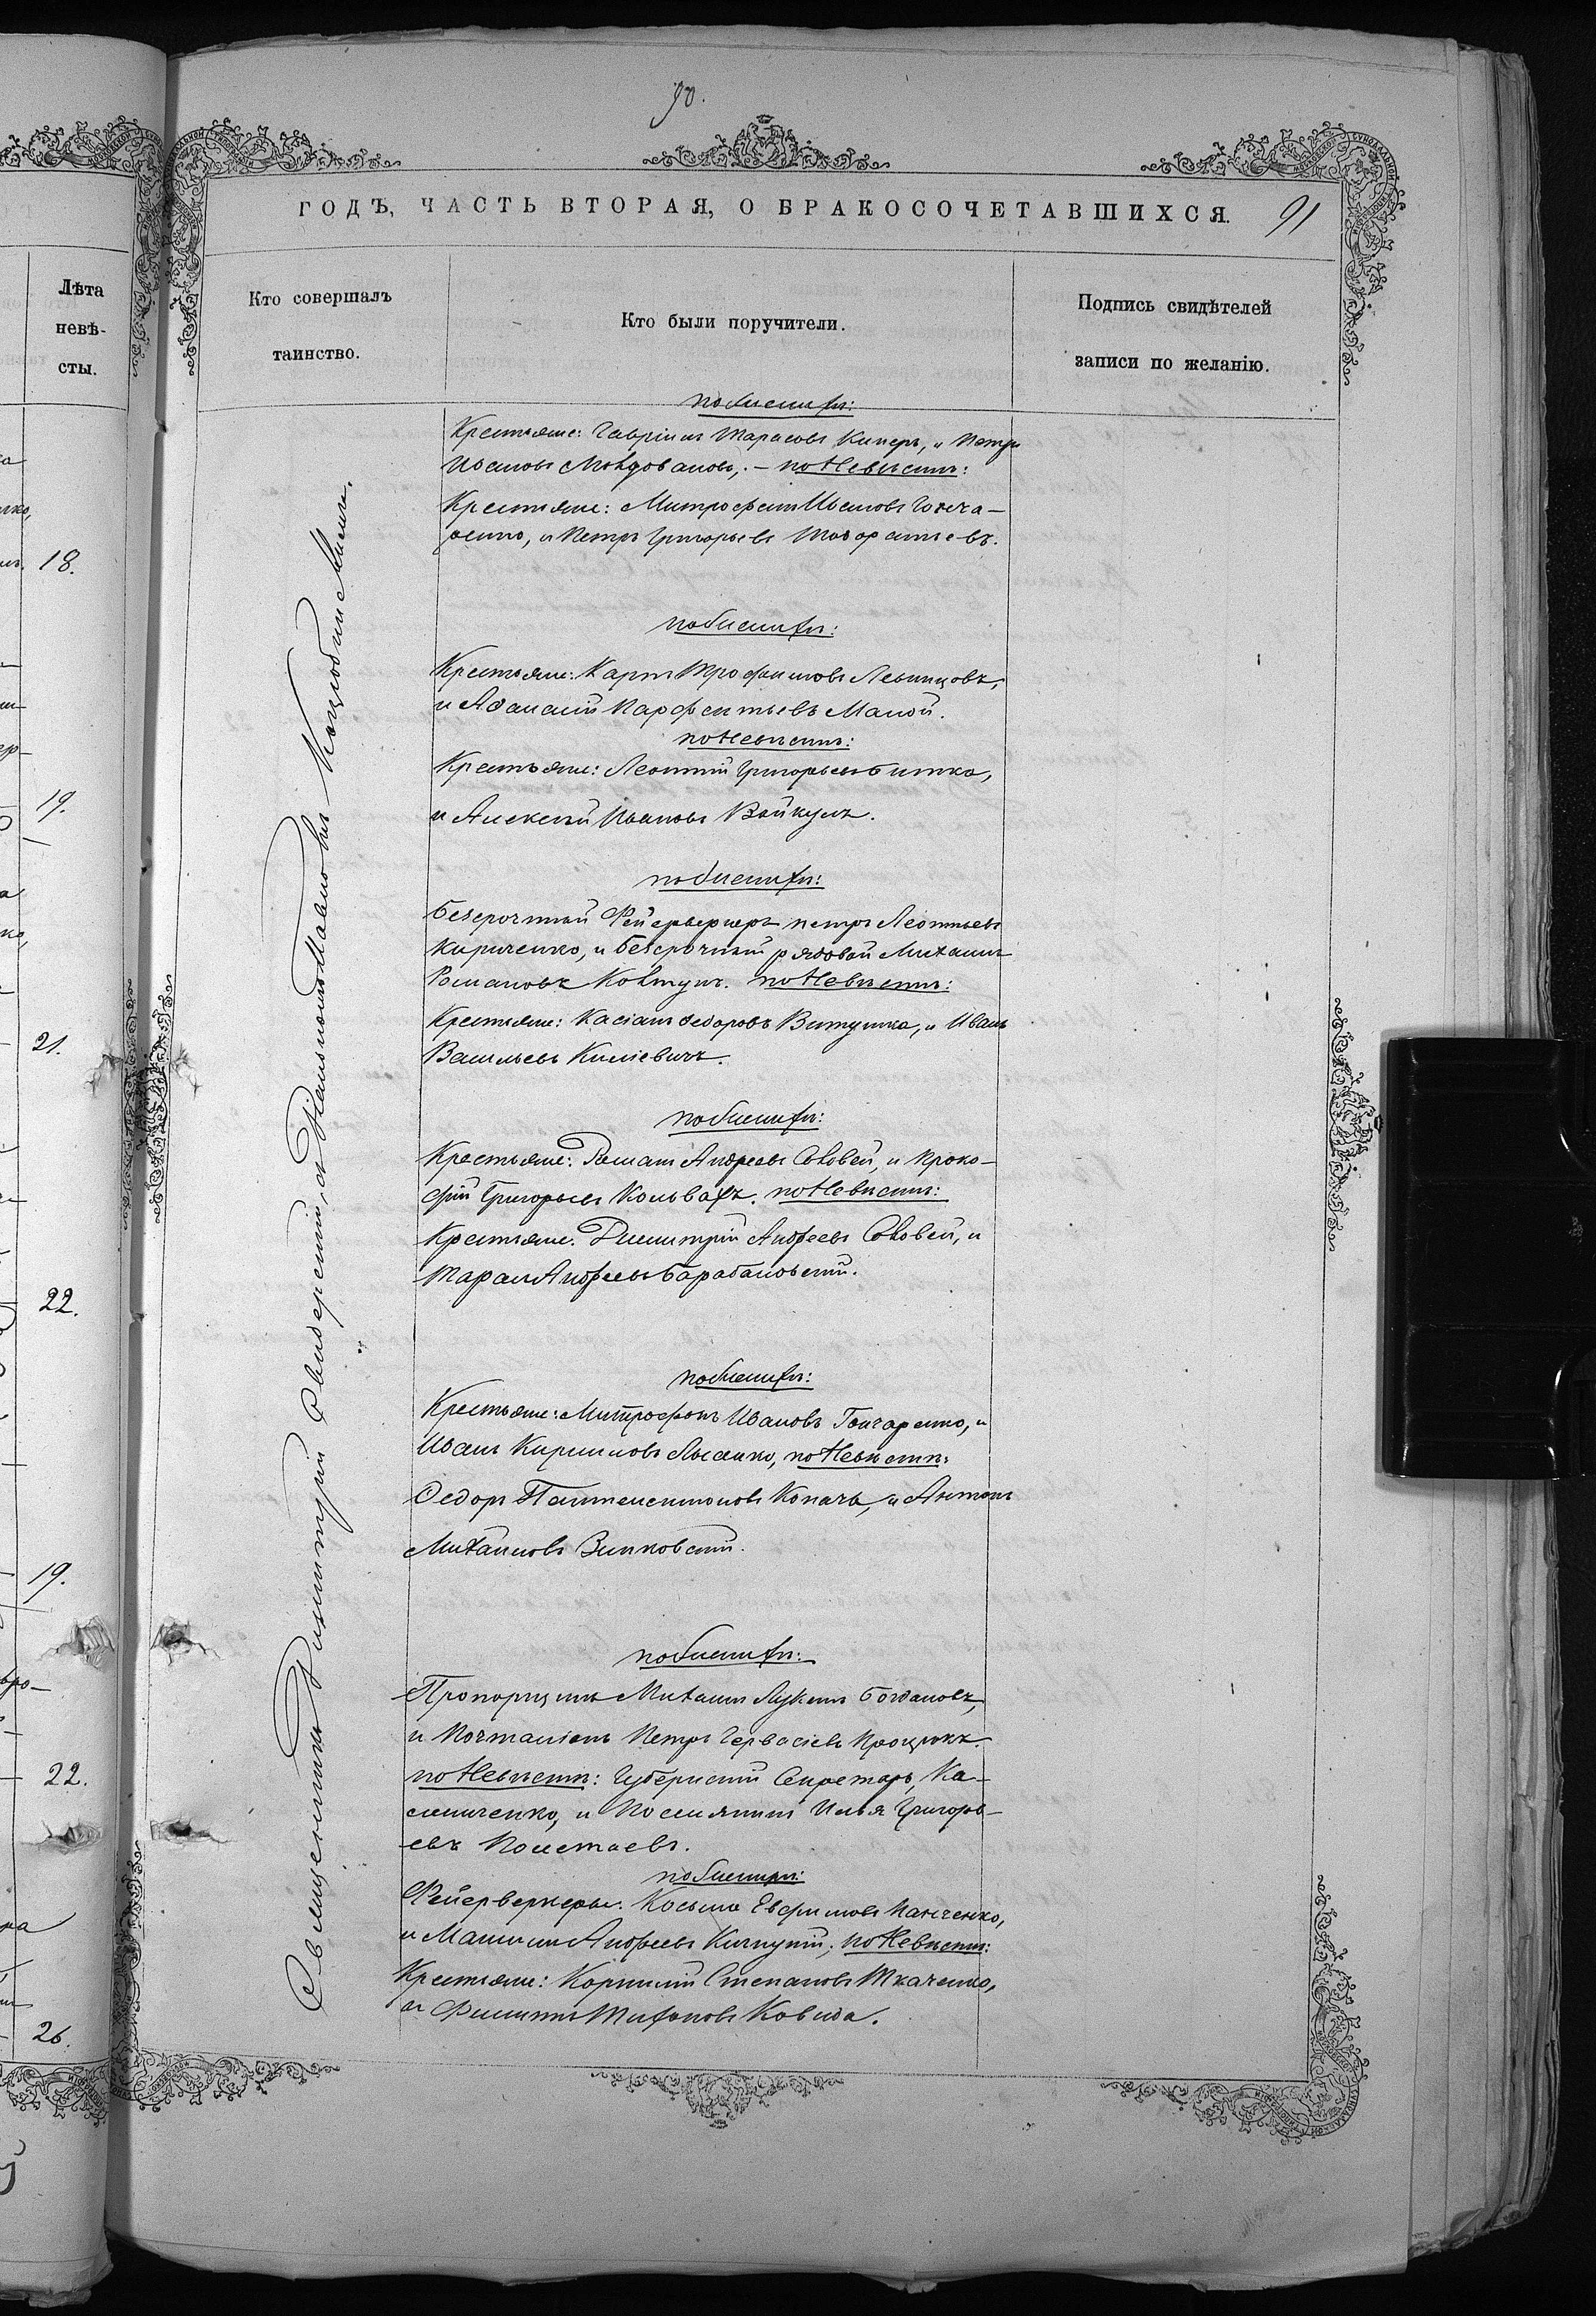 90.
ГОДЪ, ЧАСТЬ ВТОРАЯ, О БРАКОСОЧЕТАВШИХСЯ.
91
Лѣта
невѣ-
сты.
Кто совершалъ
таинство.
Кто были поручители.
Подпись свидѣтелей
записи по желанію.
18.
19.
21.
22.
19.
22.
26.
Священникъ Димитрій Свидерскій, съ Псаломщ. Павломъ
по женихѣ:
Крестьяне: Гавріилъ Тарасовъ Киперъ, и Петръ
Ивановъ Молдовановъ, - по невѣстѣ:
Крестьяне: Митрофанъ Ивановъ Гонча-
ренко, и Петръ Григорьевъ
по женихѣ:
Крестьяне: Карпъ Трофимовъ Левинцовъ,
и Аѳанасій Парфентьевъ Малой.
по невѣстѣ:
Крестьяне: Леонтій Григорьевъ Битко,
и Алексѣй Ивановъ Войкулъ.
по женихѣ:
Безсрочный Фейерверкеръ Петръ Леонтьевъ
Кириченко, и безсрочный рядовой Михаилъ
Романовъ Ковтунъ. по невѣстѣ:
Крестьяне: Касіанъ Ѳедоровъ Витушка, и Иванъ
Васильевъ Киліевичъ.
по женихѣ:
Крестьяне: Романъ Андреевъ Соловей, и Проко-
фій Григорьевъ Кольвахъ. по невѣстѣ:
Крестьяне: Димитрій Андреевъ Соловей, и
Тарасъ Андреевъ Барабановскій.
по женихѣ:
Крестьяне: Митрофанъ Ивановъ Гончаренко, и
Иванъ Кирилловъ Лысенко, по невѣстѣ:
Ѳедоръ Пантелеимоновъ Копачъ, и Антонъ
Михаиловъ Зинковскій.
по женихѣ:
Прапорщикъ Михаилъ Лукинъ Богдановъ,
и Почталіонъ Петръ Гервасіевъ Процюкъ.
по невѣстѣ: Губернскій Секретарь, Ка-
линиченко, и Поселянинъ Илья Григорь-
евъ Полетаевъ.
по женихѣ:
Фейерверкеры: Косьма Евфимовъ Панченко,
и Андреевъ по невѣстѣ:
Крестьяне: Корнилій Степановъ Ткаченко,
и Филиппъ Тихоновъ Ковида.